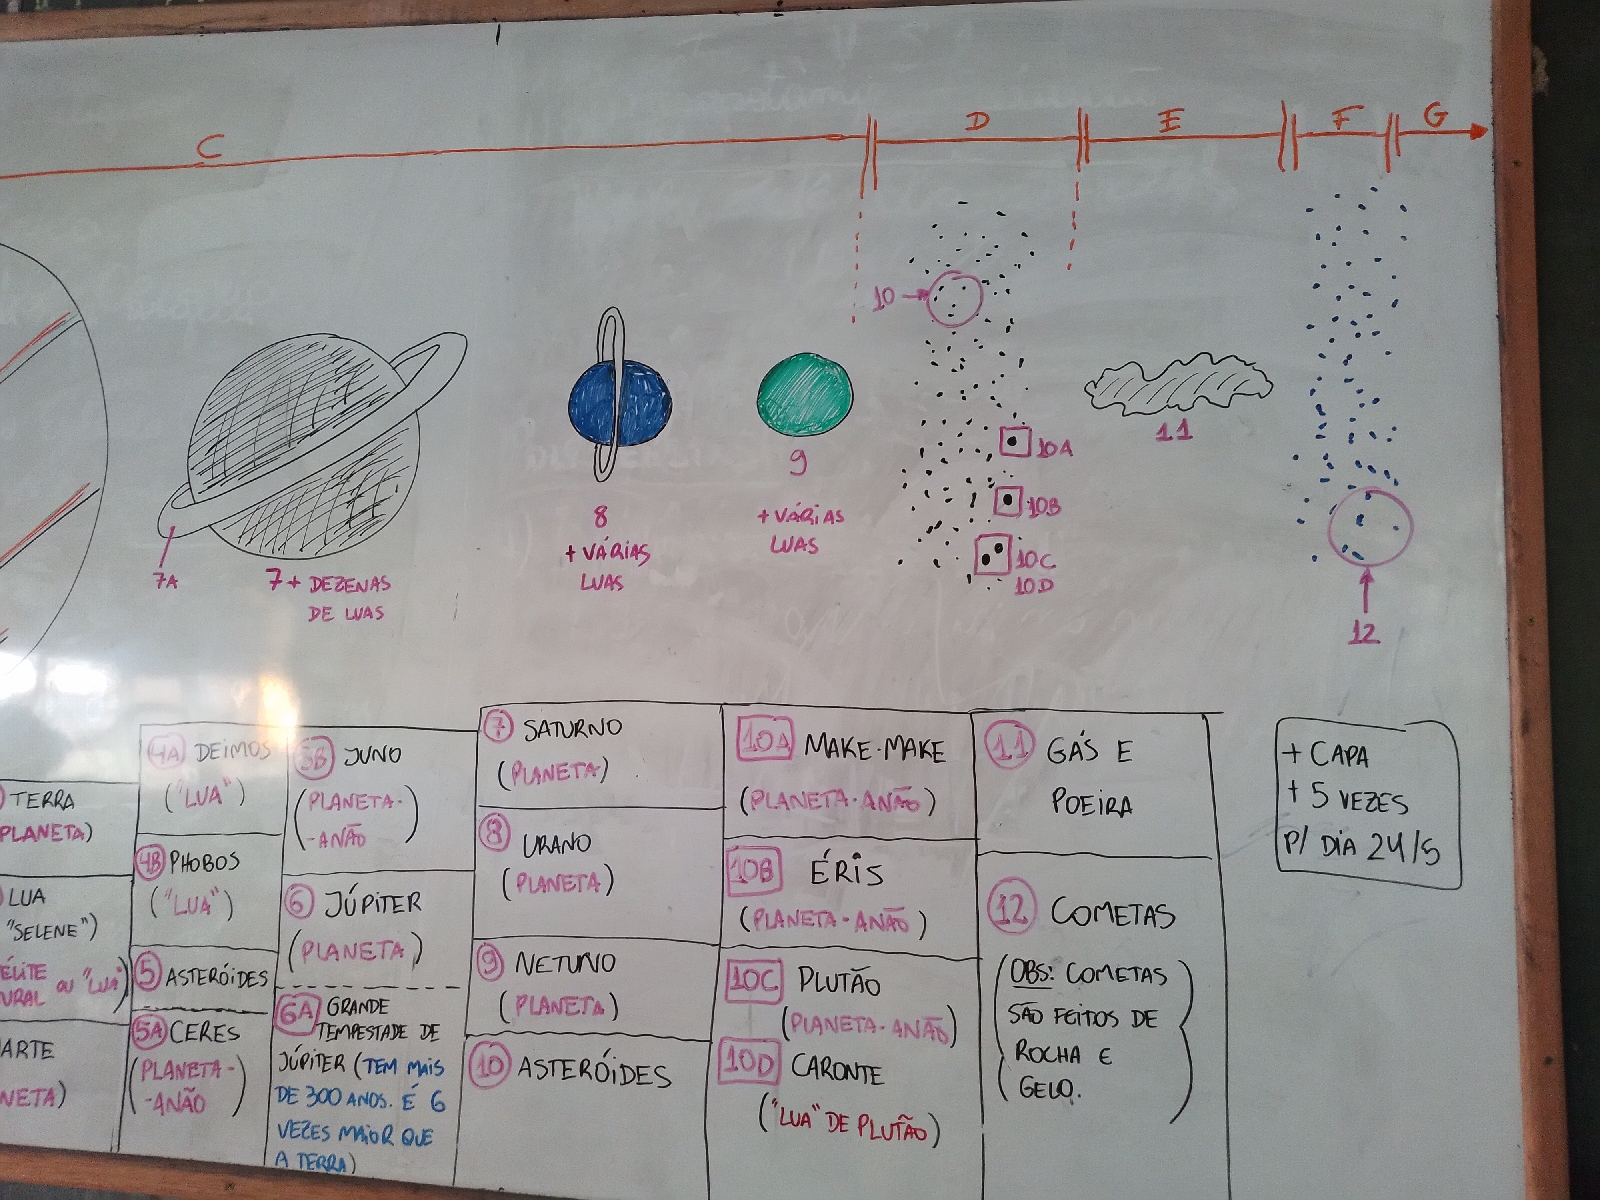 C
D
E
F
G
10
10A
10B
10C
10D
11
12
7A
7 + DEZENAS
DE LUAS
8
+ VÁRIAS
LUAS
9
+ VÁRIAS
LUAS
TERRA
PLANETA)
LUA
"SELENE")
ÉLITE
URAL OU "LUA")
ARTE
NETA)
4A DEIMOS
("LUA")
4B PHOBOS
("LUA")
5 ASTERÓIDES
5A CERES
(PLANETA-
-ANÃO)
5B JUNO
(PLANETA-
-ANÃO)
6 JÚPITER
(PLANETA)
6A GRANDE
TEMPESTADE DE
JÚPITER (TEM MAIS
DE 300 ANOS. É 6
VEZES MAIOR QUE
A TERRA)
7 SATURNO
(PLANETA)
8 URANO
(PLANETA)
9 NETUNO
(PLANETA)
10 ASTERÓIDES
10A MAKE-MAKE
(PLANETA-ANÃO)
10B ÉRIS
(PLANETA-ANÃO)
10C PLUTÃO
(PLANETA-ANÃO)
10D CARONTE
("LUA" DE PLUTÃO)
11 GÁS E
POEIRA
12 COMETAS
(OBS: COMETAS
SÃO FEITOS DE
ROCHA E
GELO.)
+ CAPA
+ 5 VEZES
P/ DIA 24/5